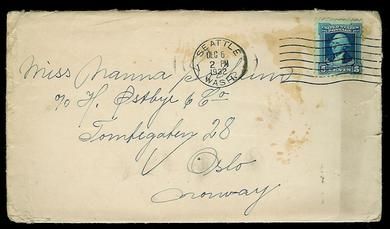 SEATTLE
DEC 6
2 PM
1932
WASH.
5 CENTS 5
Miss Nanna
℅ H. Østbye & Co
Tomtegaten 28
Oslo
Norway